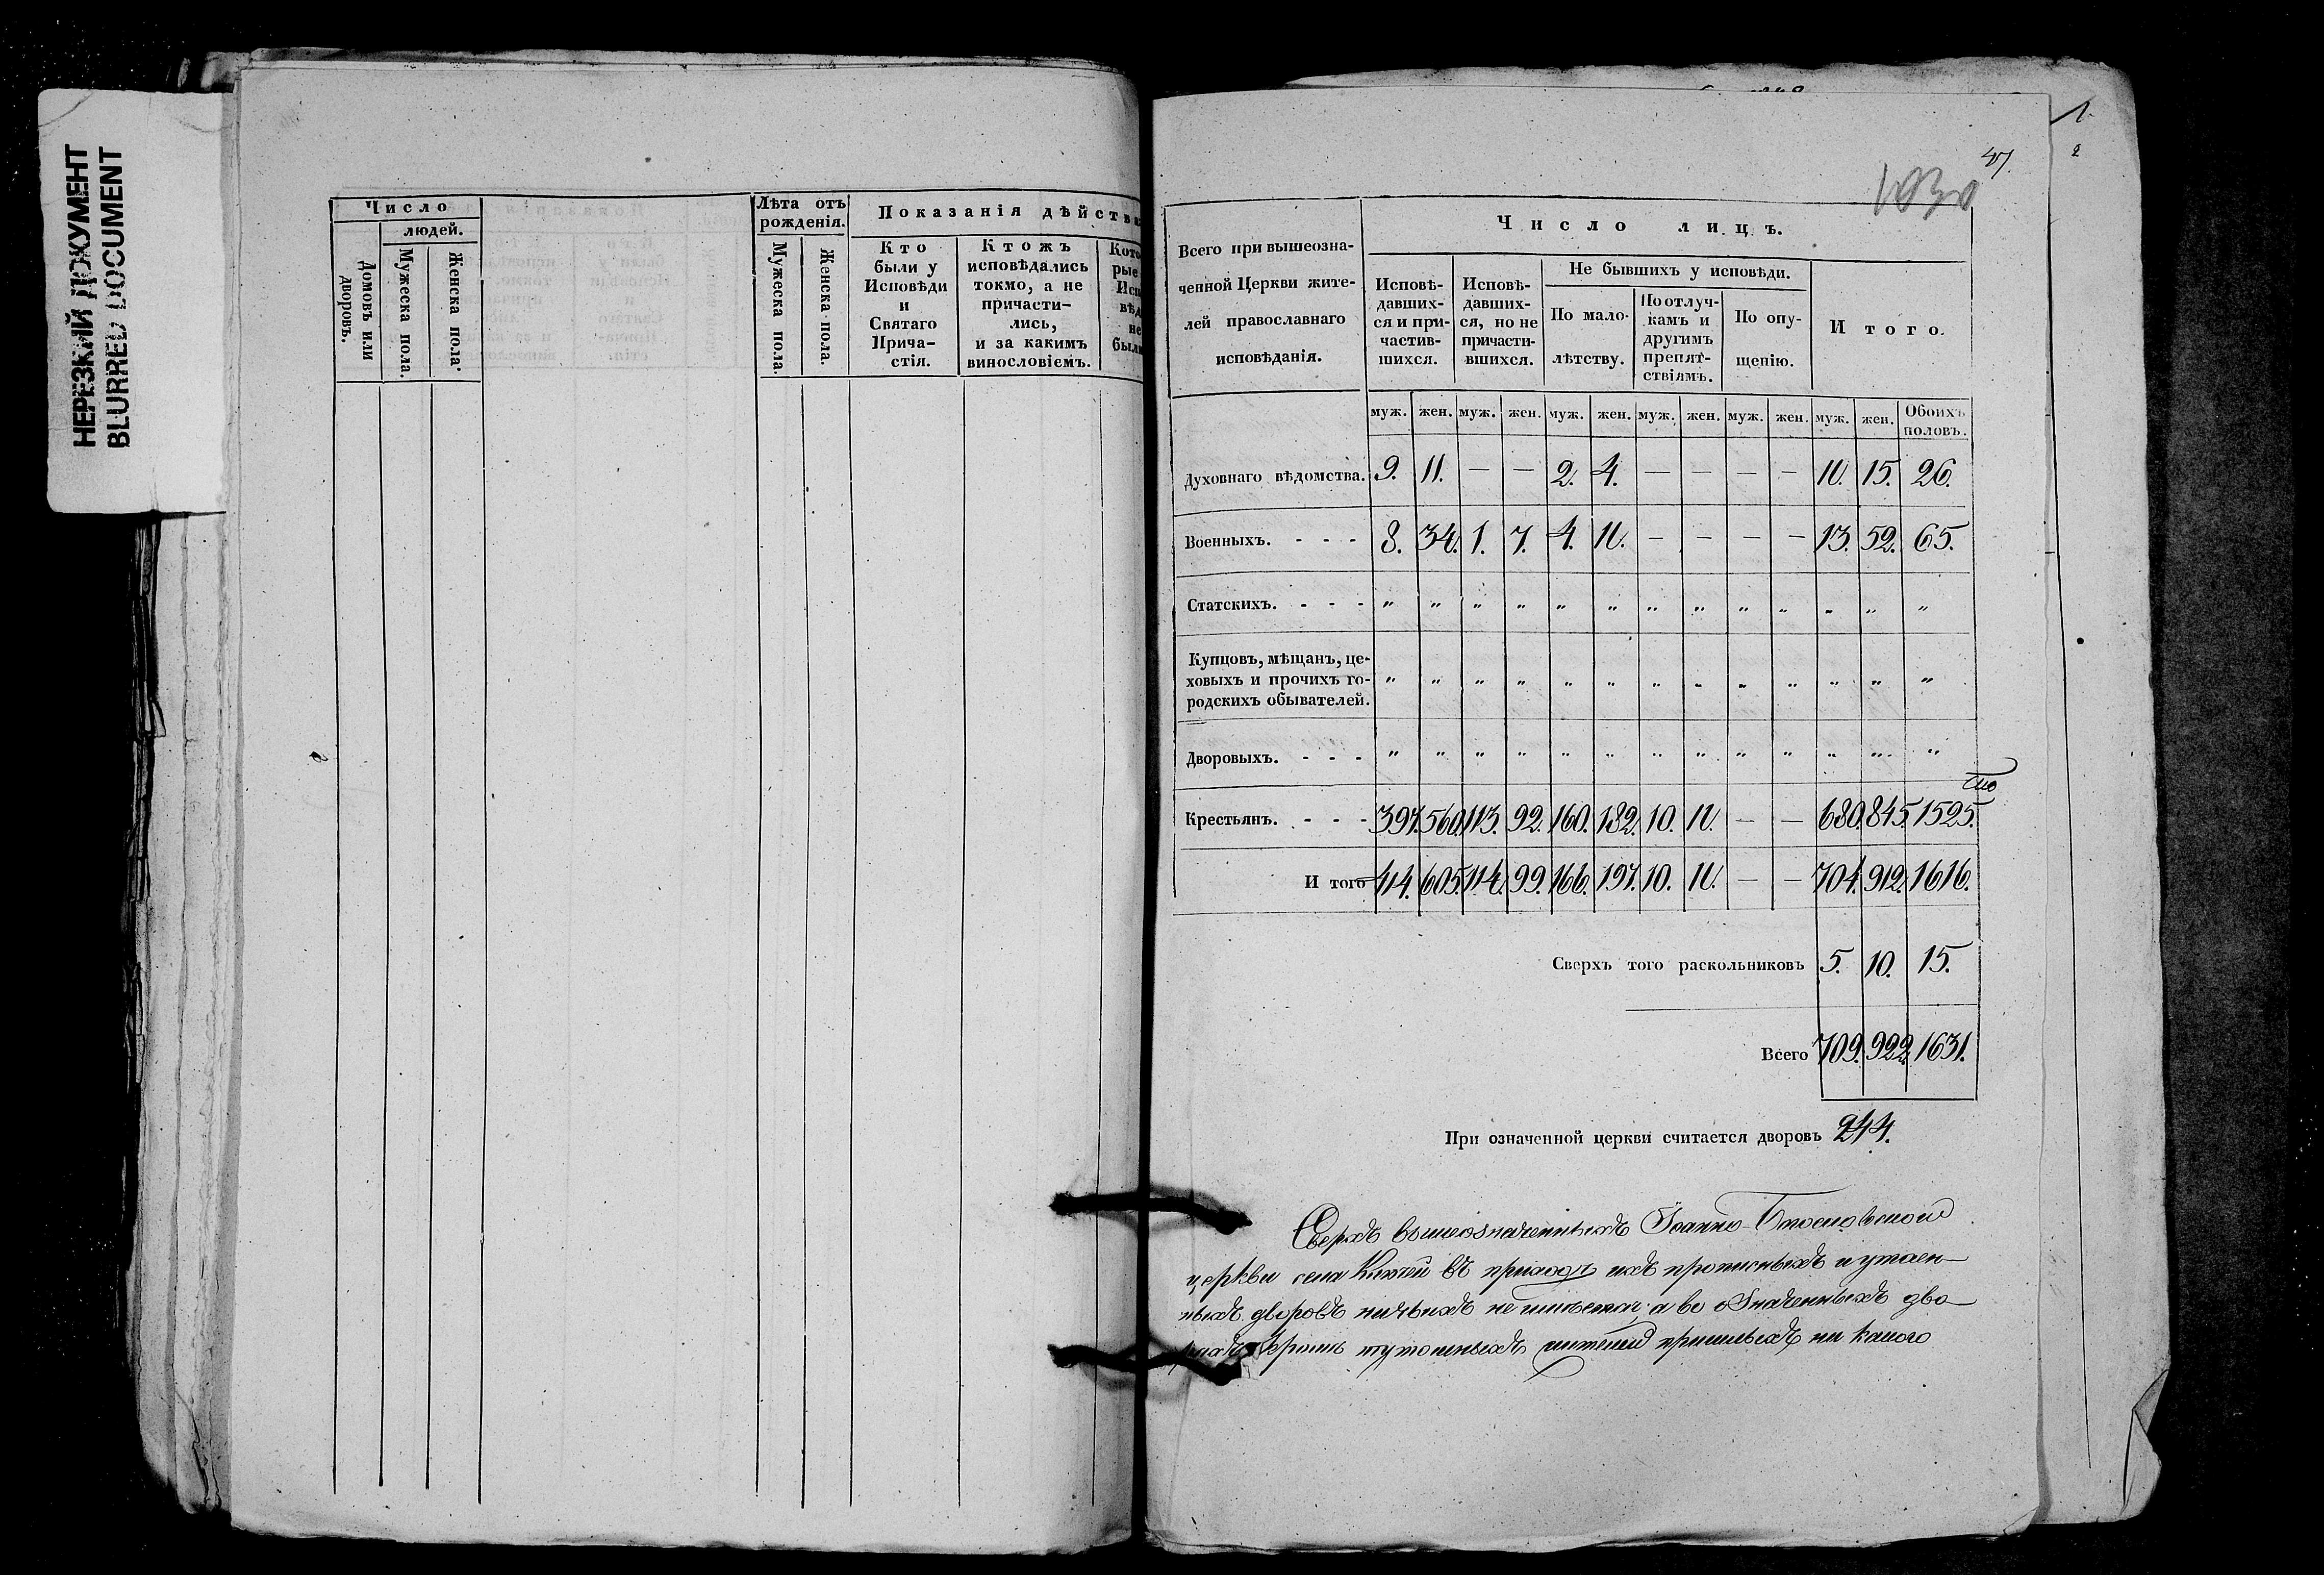 НЕРЕЗКИЙ ДОКУМЕНТ
BLURRED DOCUMENT
Число
людей.
Домовъ или дворовъ.
Мужеска пола.
Женска пола.
Лѣта отъ рожденія.
Мужеска пола.
Женска пола.
Показанія дѣйств
Кто были у Исповѣди и Святаго Прича-стія.
Ктожъ исповѣдались токмо, а не причасти-лись, и за какимъ винословіемъ.
Кото
рые
Исп
вѣд
не
был
47.
1030
Всего при вышеозна-
ченной Церкви жите-
лей православнаго
исповѣданія.
Число лицъ.
Исповѣ-давших-ся и при-частив-шихся.
Исповѣ-давших-ся, но не причасти-вшихся.
Не бывшихъ у исповѣди.
По мало-лѣтству.
По отлуч-камъ и другимъ препят-ствіямъ.
По опу-щенію.
Итого.
муж. жен. муж. жен. муж. жен. муж. жен. муж. жен. муж. жен. Обоихъ половъ.
Духовнаго вѣдомства. 9. 11. — — 2. 4. — — — — 11. 15. 26.
Военныхъ. - - - 8. 34. 1. 7. 4. 11. — — — — 13. 52. 65.
Статскихъ. - - - „ „ „ „ „ „ „ „ „ „ „ „ „
Купцовъ, мѣщанъ, це-
ховыхъ и прочихъ го- „ „ „ „ „ „ „ „ „ „ „ „ „
родскихъ обывателей.
Дворовыхъ. - - - „ „ „ „ „ „ „ „ „ „ „ „ „
Крестьянъ. - - - 397. 560. 113. 92. 160. 182. 10. 11. — — 680. 845. 1525.
И того 414. 605. 114. 99. 166. 197. 10. 11. — — 704. 912. 1616.
Сверхъ того раскольниковъ 5. 10. 15.
Всего 709. 922. 1631.
При означенной церкви считается дворовъ 244.
Сверхъ вышеозначенныхъ Іоанно-Богословской
церкви села въ приходѣ ихъ прописныхъ и утаен-
ныхъ дворовъ ничьихъ не имѣется; а во означенныхъ дво-
рахъ кромѣ тутошныхъ жителей пришлыхъ ни какого